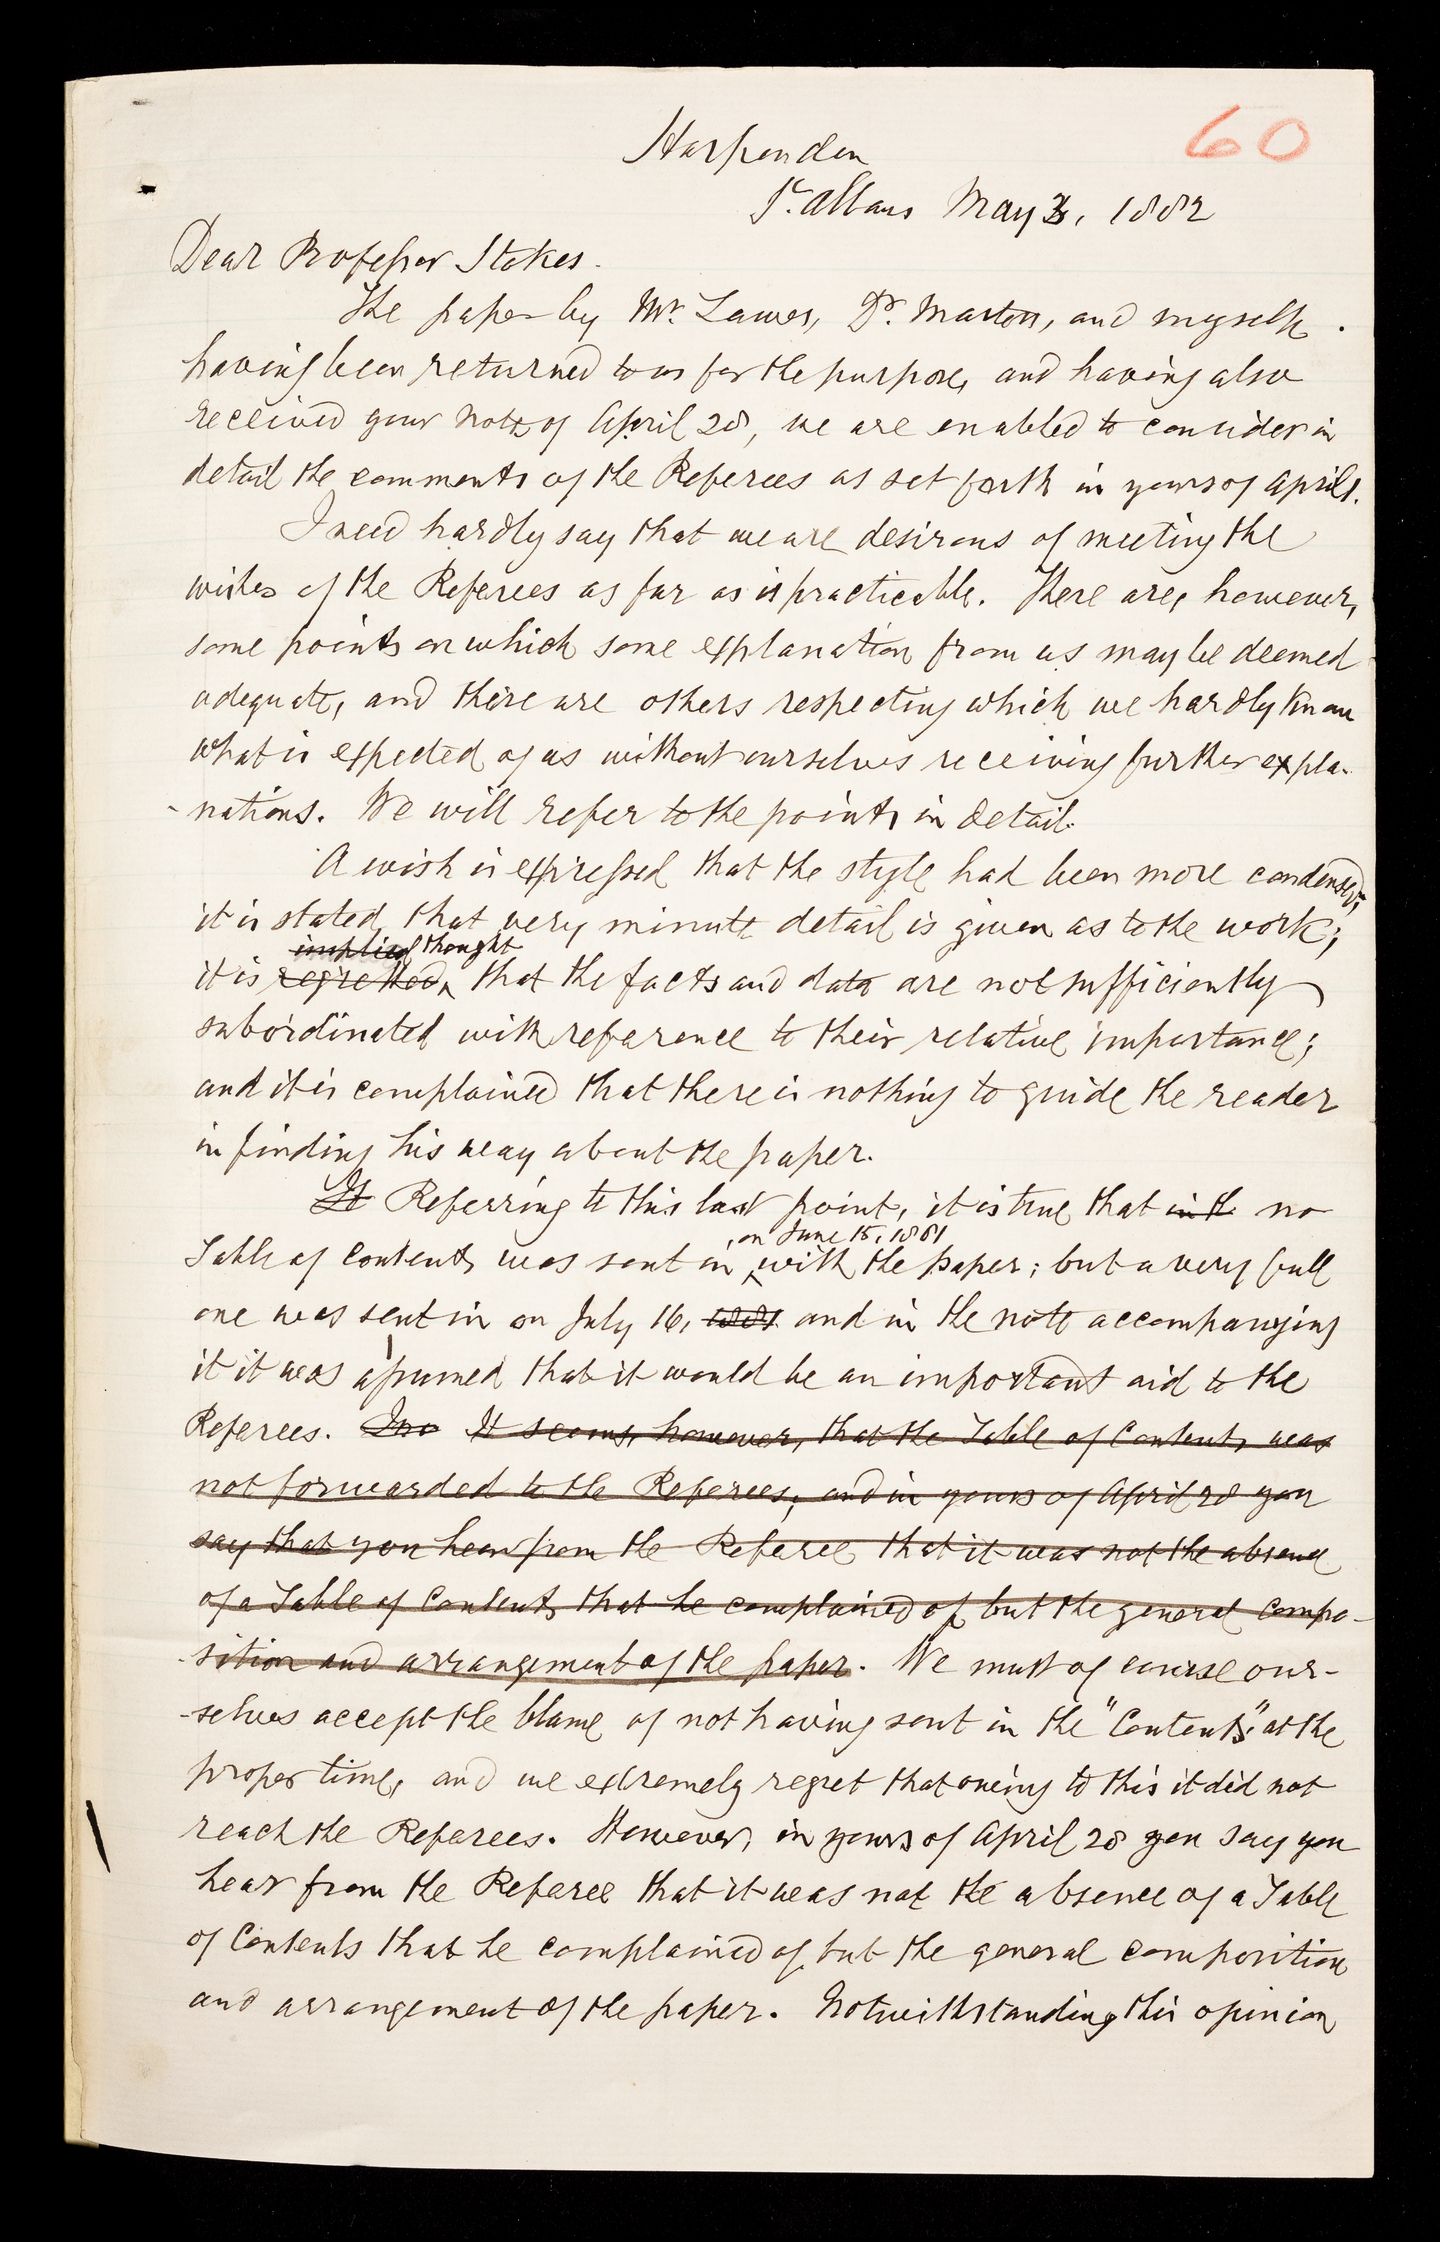 60
Harpenden
St. Albans May 3, 1882
Dear Professor Stokes.
The paper by Mr. Lawes, Dr. Masters, and myself
having been returned to us for the purpose, and having also
received your note of April 28, we are enabled to consider in
detail the comments of the Referees as set forth in yours of April 1.
I need hardly say that we are desirous of meeting the
wishes of the Referees as far as is practicable. There are, however,
some points on which some explanation from us may be deemed
adequate, and there are others respecting which we hardly know
what is expected of us without ourselves receiving further expla-
-nations. We will refer to the points in detail.
A wish is expressed that the style had been more condensed;
it is stated that very minute detail is given as to the work;
implied thought
it is regretted, that the facts and data are not sufficiently
subordinated with reference to their relative importance;
and it is complained that there is nothing to guide the reader
in finding his way about the paper.
It Referring to this last point, it is true that in the no
, on June 15, 1881
Table of Contents was sent in with the paper; but a very full
one was sent in on July 16, 1881 and in the note accompanying
it it was assumed that it would be an important aid to the
Referees. It seems, however, that the Table of Contents was
not forwarded to the Referees, and in yours of April 28 you
say that you hear from the Referee that it was not the absence
of a Table of Contents that he complained of but the general compo-
-sition and arrangement of the paper. We must of course our-
-selves accept the blame of not having sent in the "Contents" at the
proper time, and we extremely regret that owing to this it did not
reach the Referees. However, in yours of April 28 you say you
hear from the Referee that it was not the absence of a Table
of Contents that he complained of, but the general composition
and arrangement of the paper. Notwithstanding this opinion